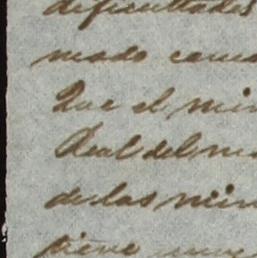 dificultades
modo como
Que el min
Real del m
de las min
tiene muy